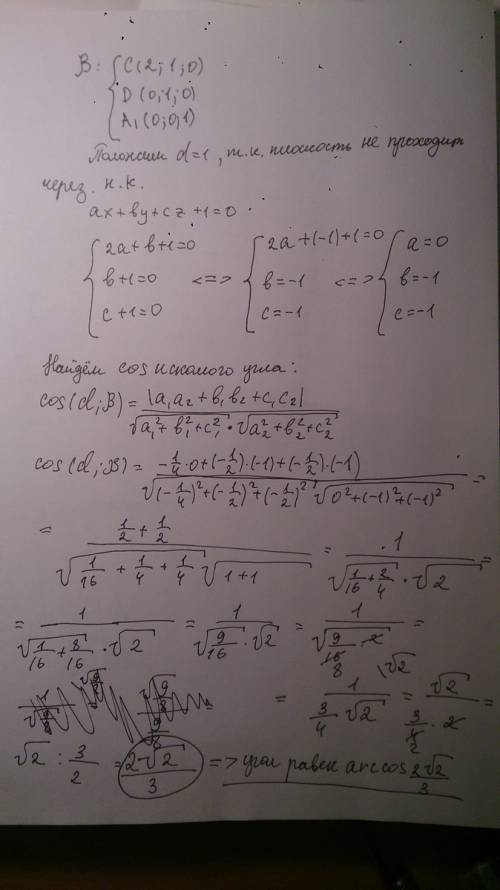 β: { C(2; 1; 0)
D(0; 1; 0)
A₁(0; 0; 1)
Положим d=1, т.к. плоскость не проходит
через н.к.
ax+by+cz+1=0
{ 2a+b+1=0 <=> { 2a+(-1)+1=0 <=> { a=0
b+1=0 b=-1 b=-1
c+1=0 c=-1 c=-1
Найдём cos искомого угла:
cos(α; β) = |a₁a₂+b₁b₂+c₁c₂| / (√(a₁²+b₁²+c₁²) · √(a₂²+b₂²+c₂²))
cos(α; β) = (-1/4·0+(-1/2)·(-1)+(-1/2)·(-1)) / (√((-1/4)²+(-1/2)²+(-1/2)²) √(0²+(-1)²+(-1)²)) =
= (1/2+1/2) / (√(1/16+1/4+1/4) √(1+1)) = 1 / (√(1/16+2/4) · √2) =
= 1 / (√(1/16+8/16) · √2) = 1 / (√(9/16) · √2) = 1 / √(9/16 · 2) =
8
= 1 / (3/4 √2) = √2 / (3/4 · 2) =
√2 : 3/2 = 2√2/3 => угол равен arccos 2√2/3